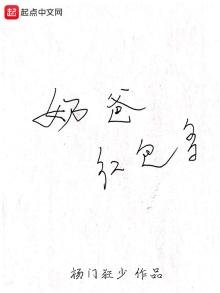 起点 起点中文网
奶爸
红包多
杨门狂少 作品